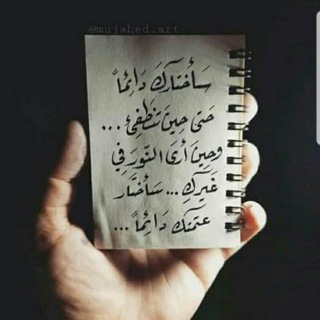 @mujahed.art
سَأختارُكَ دَائِماً
حَتى حِينَ تَنطَفِئ ...
وحِينَ أرَى النّورَ فِي
غَيرِكِ ... سَأختَار
عتمَتك دَائِماً ...